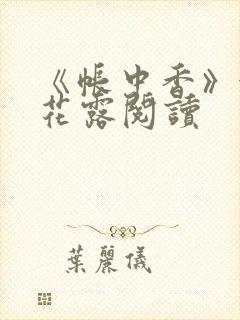 《帳中香》
花露閱讀
葉麗儀